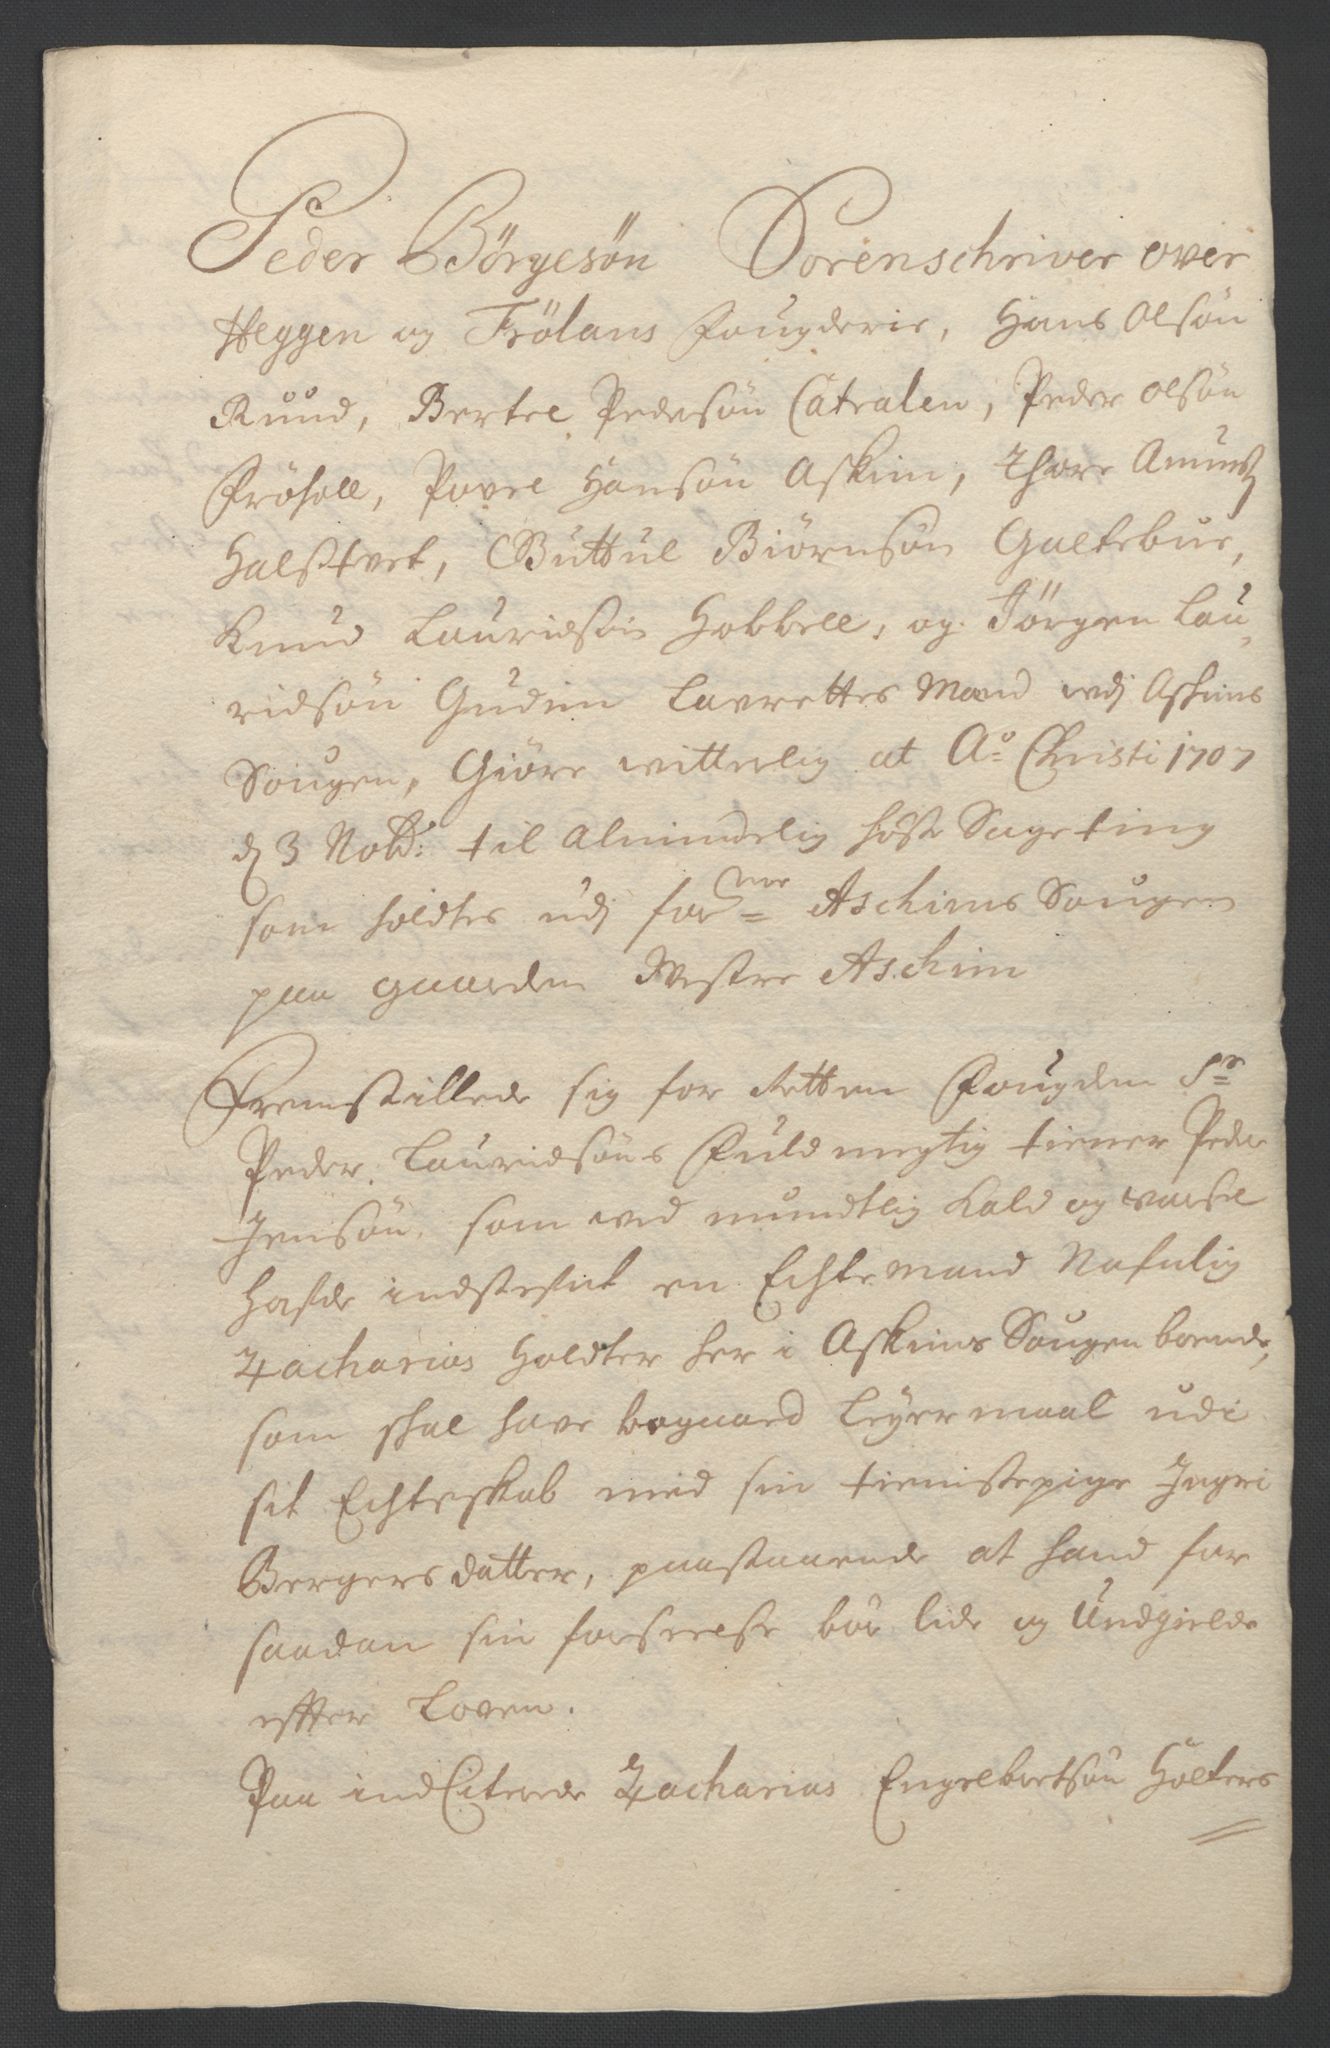 Peder Börgesön Sorenschriver over
Heggen og Frölans fougderie, Hans Olsön
Ruud, Bertel Pedersön Catralen, Peder Olsön
Fröshol, Povel Hansön Askim, Thore Amundtz
Halstvet, Guttul Biörnsön Galtebue,
Knud Lauridsön Hobbell, og Jörgen Lau-
ridsön Gudim Laurettes Mænd udj Askims
Sougen, Giöre witterlig at Ao Christi 1707
dj 3 Nobr: til Almindelig höste Sageting
som holdtes udj forne Aschims Sougen
paa gaarden Westre Aschim
Fremstillede sig for Retten Fougden Sr
Peder Lauridsöns Fuldmegtig tiener Peder
Jensön, som ved mundtlig Kald og varsel
hafde indstefnt en Echtemand Nafnlig
Zacharias Holdter her i Askims Sougen boende,
som skal have begaaed Leyermaal udi
sit Echteskab med sin tienistepige Ingri
Bergersdatter, paastaaende at hand for
saadan sin forseelse bör lide og Undgielde
effter Loven.
Paa indCiterede Zacharias Engelbretsön Hölters